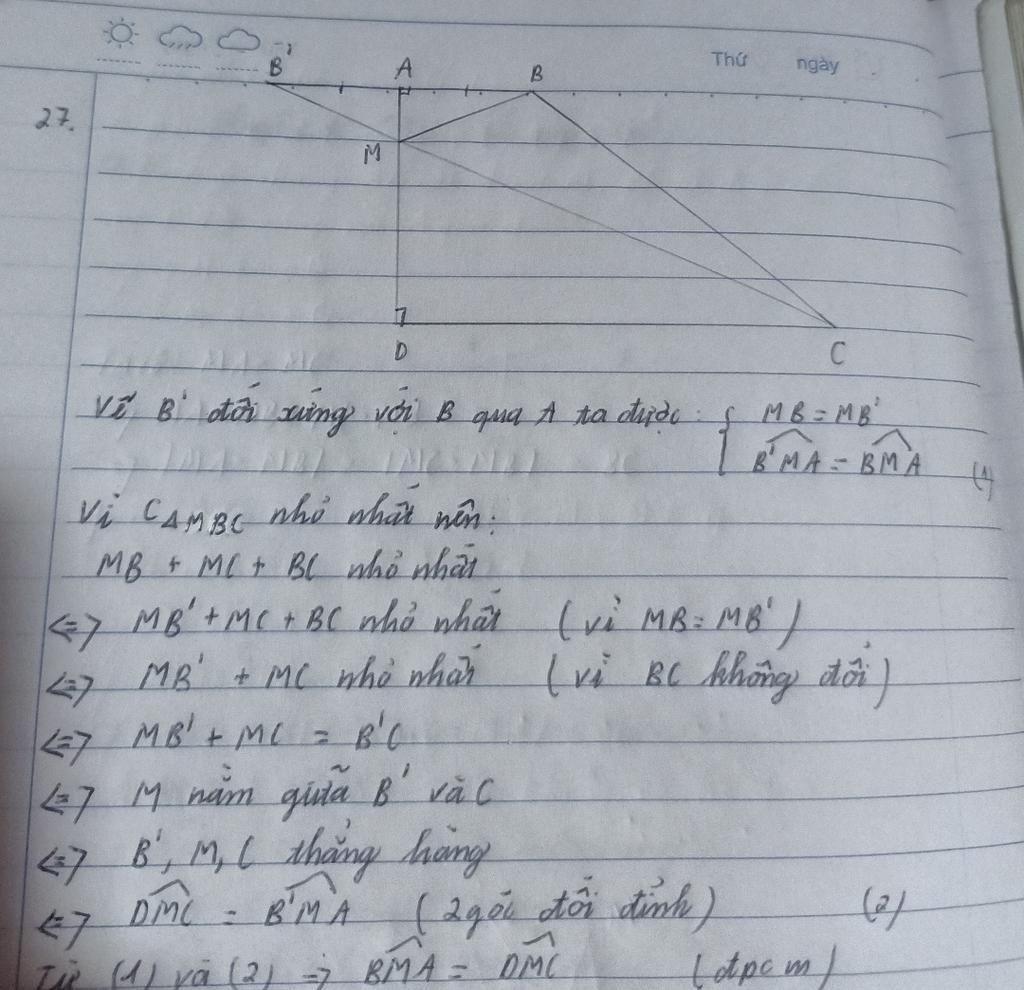 Thứ ngày
B' A B
27.
M
D C
Vẽ B' đối xứng với B qua A ta được: { MB = MB'
B'MA = BMA (1)
Vì C△MBC nhỏ nhất nên:
MB + MC + BC nhỏ nhất
<=> MB' + MC + BC nhỏ nhất (vì MB = MB')
<=> MB' + MC nhỏ nhất (vì BC không đổi)
<=> MB' + MC = B'C
<=> M nằm giữa B' và C
<=> B', M, C thẳng hàng
<=> DMC = B'MA (2 góc đối đỉnh) (2)
Từ (1) và (2) => BMA = DMC (đpcm)